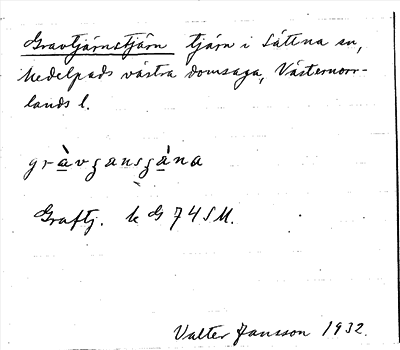 Gravtjärnstjärn tjärn i Sättna sn,
Medelpads västra domsaga, Västernorr-
lands l.
gràvʒansʒàna
Graftj. k G 74 SM.
Valter Jansson 1932.